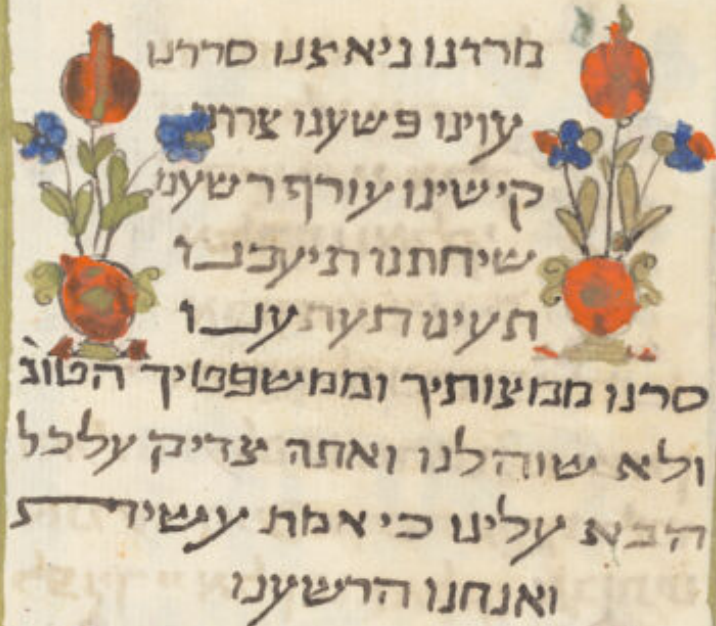 מרדנו ניאצנו סררנו
עוינו פשענו צררנו
קישינו עורף רשענו
שיחתנו תיעבנו
תעינו תעתענו
סרנו ממצותיך וממשפטיך הטוב׳
ולא שוה לנו ואתה צדיק על כל
הבא עלינו כי אמת עשית
ואנחנו הרשענו